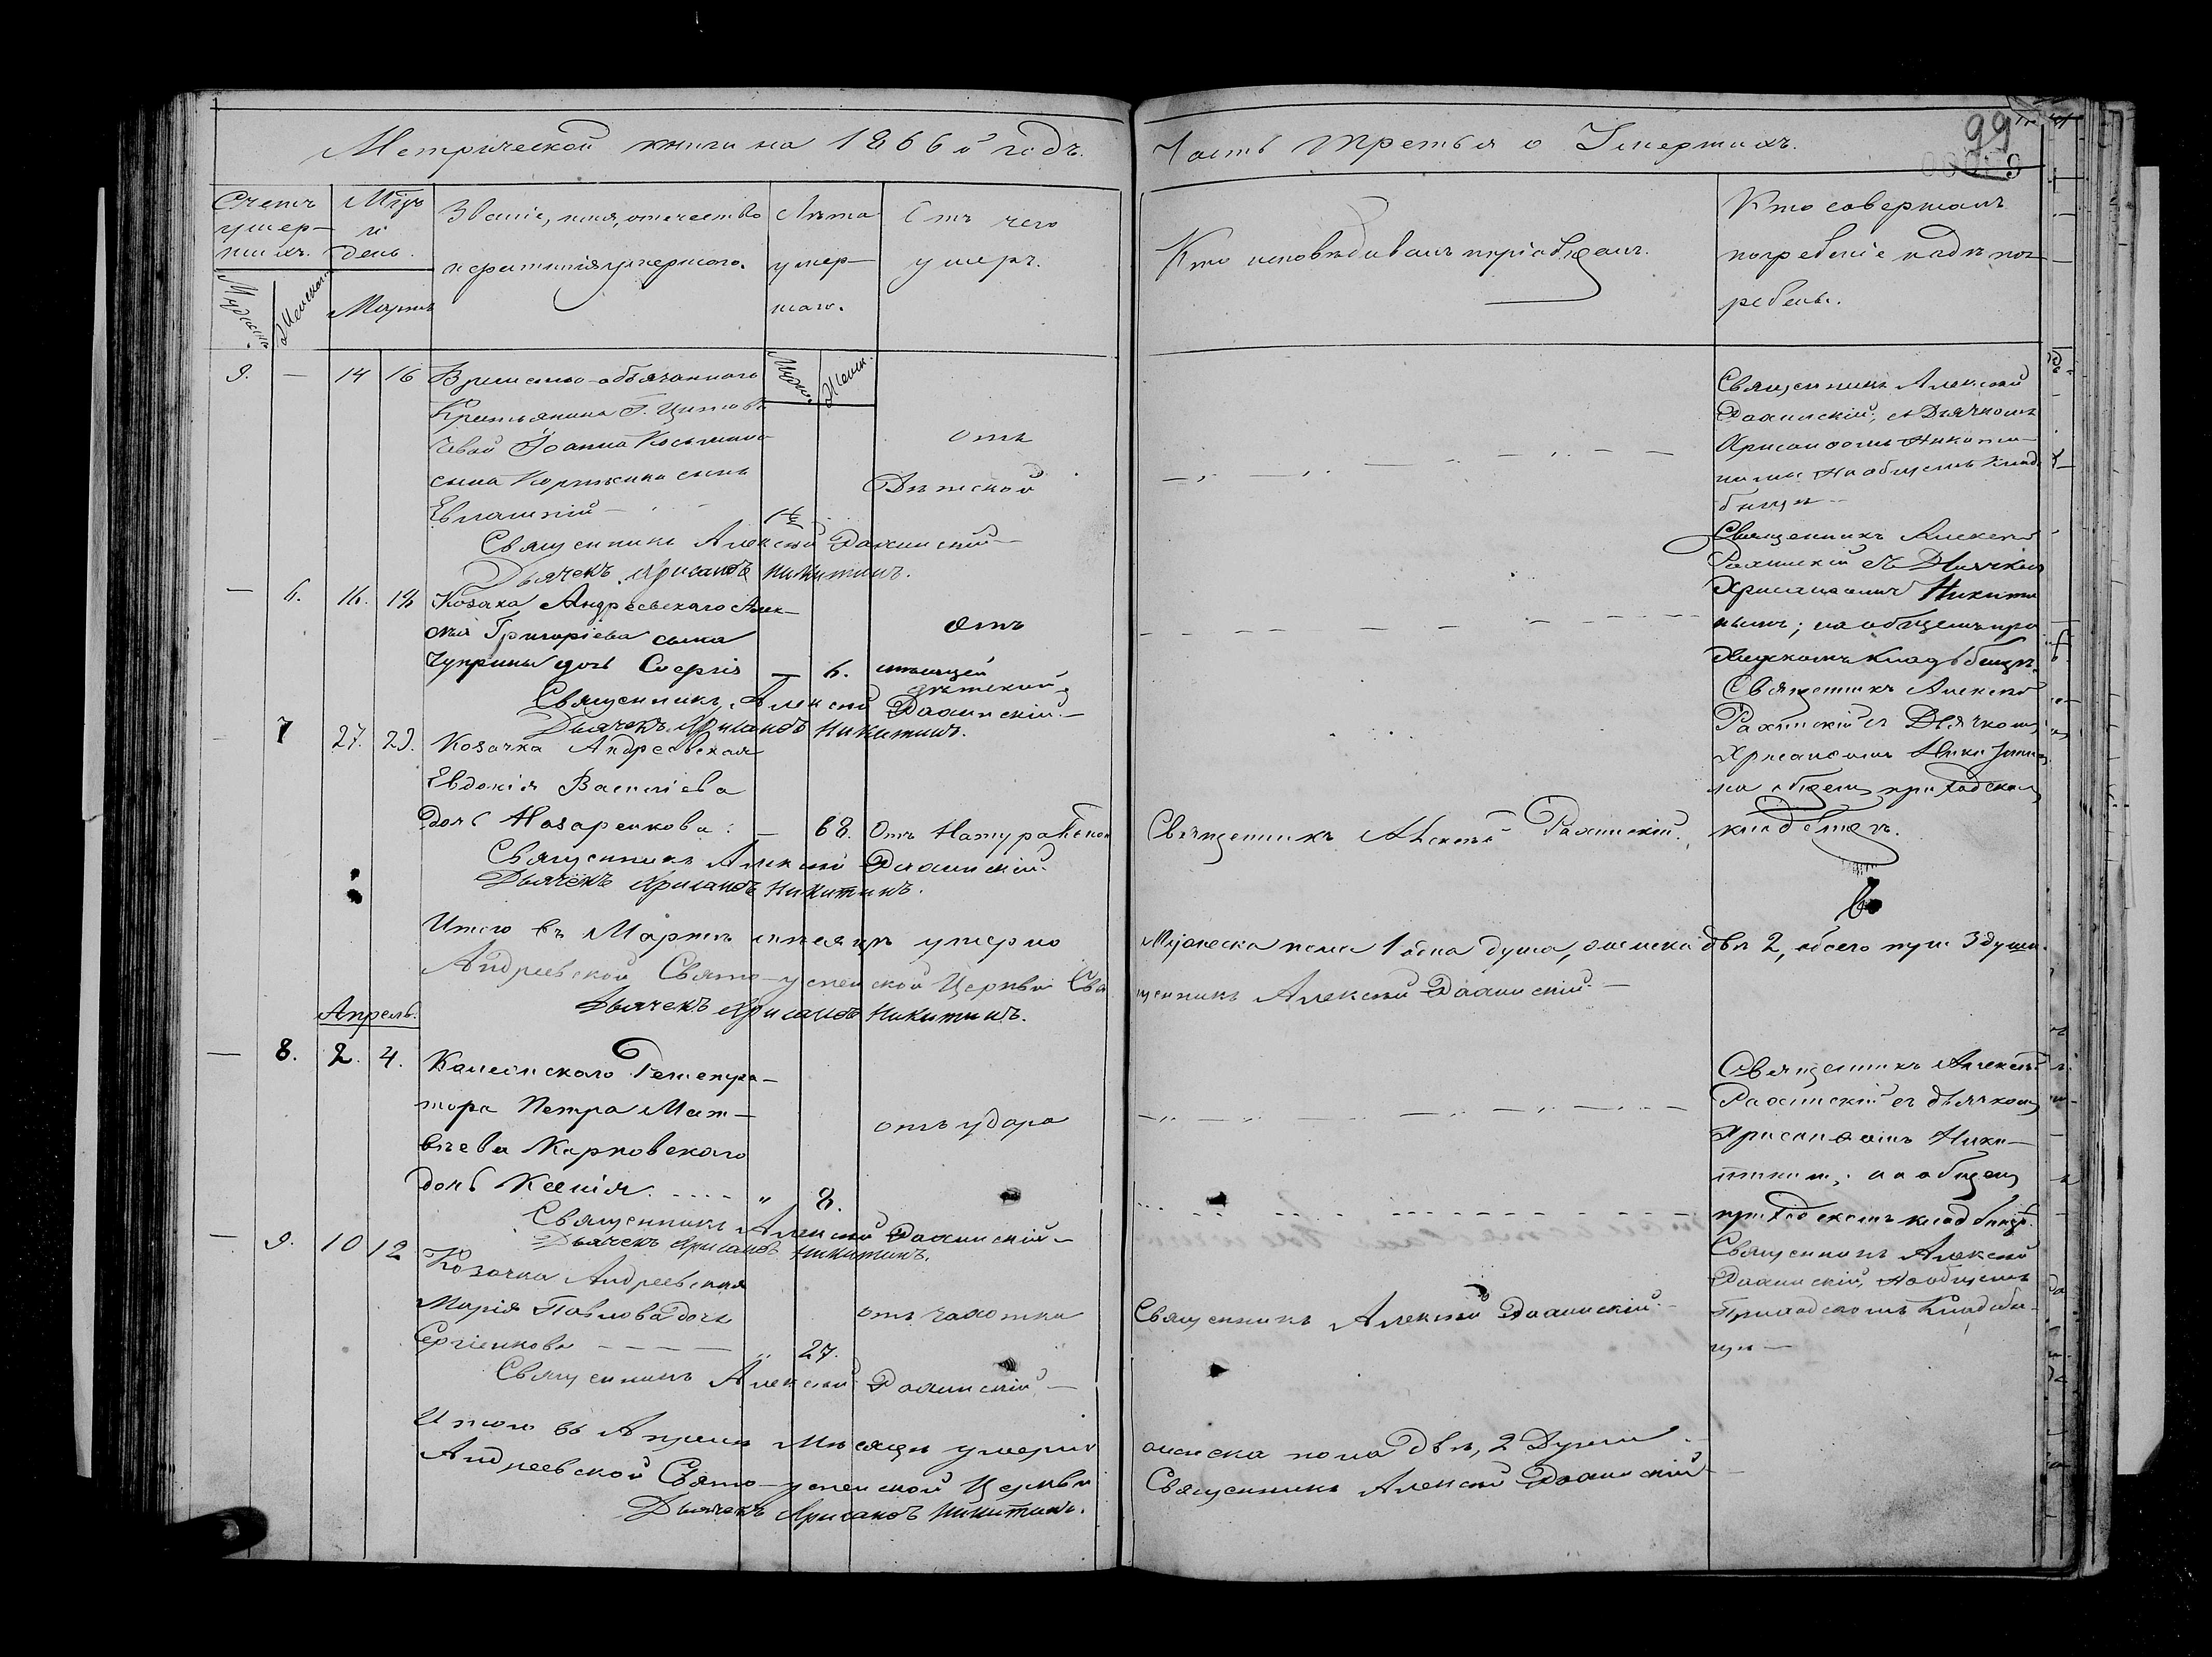 Метрической книги на 1866й годъ.
Часть третья о Умершихъ.
99
Счетъ умер-
шихъ.
Мужеска.
Женска.
Мсцъ
и
день.
Мартъ
Званіе, имя, отчество
и фамилія умершаго.
Лѣта
умер-
шаго.
Муж.
Женск.
Отъ чего
умеръ.
Кто исповѣдывалъ и пріобщалъ.
Кто совершалъ
погребеніе и гдѣ пог-
ребены.
9. — 14 16 Временно-обязаннаго
Крестьянина Г.
Іоанна Косьмина
сына сынъ
Евлампій 1½
отъ
Дѣтской
Священникъ Алексѣй
съ Дьячкомъ
Хрисанфомъ Никити-
нымъ На общемъ клад-
бищѣ
Священникъ Алексѣй
Дьячекъ Хрисанфъ Никитинъ.
— 6. 16. 18 Козака Андреевскаго Алек-
сѣя Григоріева сына
Чуприны дочь — 6.
отъ
дѣтской
Священникъ Алексѣй
съ Дьячкомъ
Хрисанфомъ Никити
нымъ; на общемъ при
ходскомъ кладбищѣ.
Священникъ Алексѣй
Дьячекъ Хрисанфъ Никитинъ.
— 7 27. 29. Козачка Андреевская
Евдокія Василіева
дочь Назаренкова: — 68. Отъ Натуральной
Священникъ Алексѣй
Священникъ Алексѣй
съ Дьячкомъ
Хрисанфомъ Никитин
на общемъ приходскомъ
кладбищѣ.
Священникъ Алексѣй
Дьячекъ Хрисанфъ Никитинъ.
Итого въ Мартѣ мѣсяцѣ умерло
Мужеска пола 1 одна душа, женска двѣ 2, обоего пула 3 души.
Андреевской Свято-успенской Церкви Свя
щенникъ Алексѣй
Дьячекъ Хрисанфъ Никитинъ.
Апрель.
— 8. 2. 4. Регистра-
тора Петра Мат-
вѣева Карповскаго
дочь Ксенія. .... " 8.
отъ удара
Священникъ Алексѣй
съ дьячкомъ
Хрисанфомъ Ники-
тинымъ; на общемъ
приходскомъ кладбищѣ.
Священникъ Алексѣй
Дьячекъ Хрисанфъ Никитинъ.
— 9. 10 12 Козачка Андреевская
Марія Павлова дочь
Сергіенкова — — — " 27.
отъ чахотки
Священникъ Алексѣй
Священникъ Алексѣй
На общемъ
Приходскомъ Кладби-
щѣ —
Священникъ Алексѣй
Итого въ Апрелѣ Мѣсяцѣ умерло
женска пола двѣ, 2 Души
Андреевской Свято-успенской Церкви
Священникъ Алексѣй
Дьячекъ Хрисанфъ Никитинъ.